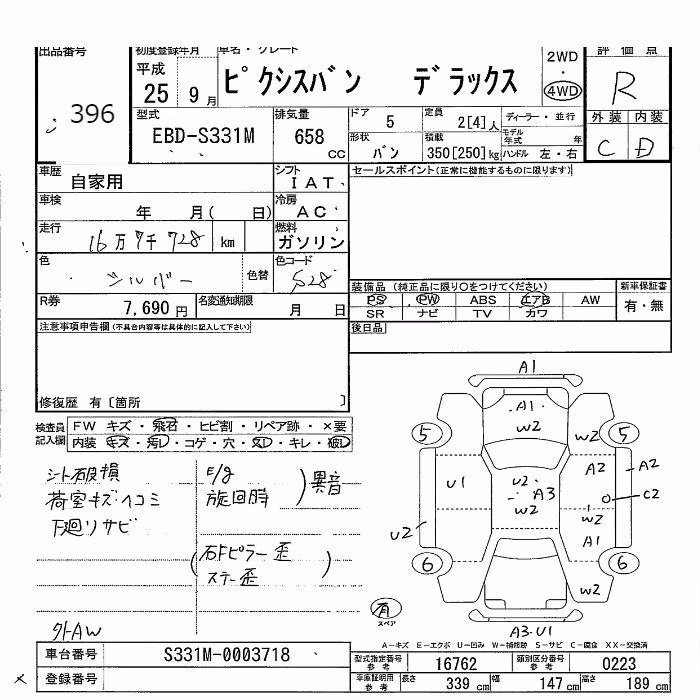 出品番号 396
初度登録年月 平成 25 9月
車名・グレード ピクシスバン デラックス
2WD・4WD
評価点 R
型式 EBD-S331M
排気量 658 CC
ドア 5
定員 2[4]人
ディーラー・並行
モデル年式 年
外装 C 内装 D
形状 バン
積載 350[250]kg
ハンドル 左・右
車歴 自家用
シフト IAT
セールスポイント(正常に機能するものに限ります)
車検 年 月( 日)
冷房 AC
走行 16万7千728 km
燃料 ガソリン
色 シルバー 色替
色コード S28
装備品 (純正品に限り○をつけてください)
新車保証書 有・無
PS PW ABS エアB AW
SR ナビ TV カワ
R券 7,690円
名変通知期限 月 日
後日品
注意事項申告欄(不具合内容等は具体的に記入して下さい)
修復歴 有〔箇所 〕
検査員記入欄
FW キズ・飛石・ヒビ割・リペア跡・×要
内装 キズ・汚レ・コゲ・穴・スレ・キレ・破レ
シート破損
荷室キズヘコミ
下廻リサビ
E/g
旋回時
異音
右Fピラー歪
ステー歪
外AW
A1
A1
W2
W2
5
5
U1
U2
A3
W2
A2
A2
C2
W2
A1
U2
6
6
W2
有
スペア
A3・U1
A-キズ E-エクボ U-凹み W-補修跡 S-サビ C-腐食 XX-交換済
車台番号 S331M-0003718
型式指定番号 参考 16762
類別区分番号 参考 0223
登録番号
車庫証明用 参考
長さ 339 cm 幅 147 cm 高さ 189 cm